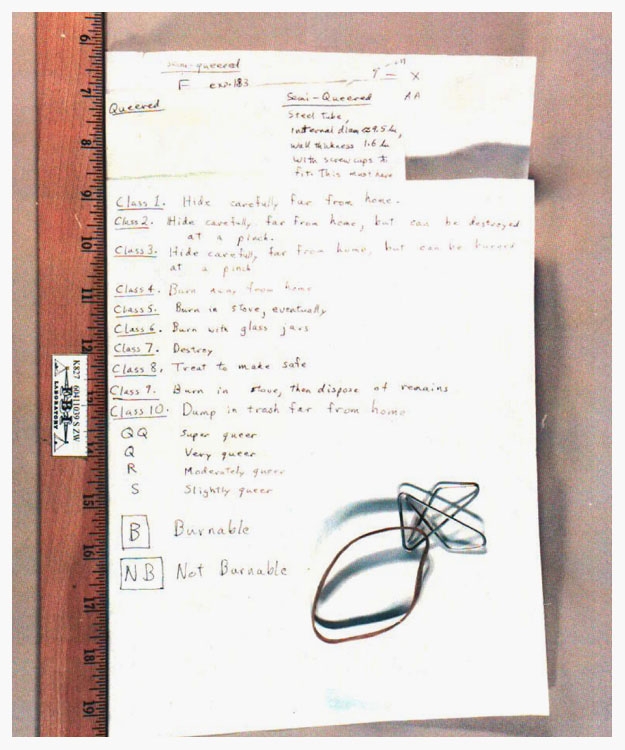 semi-queered
F exp. 183
X
Queered
Semi-Queered AA
Steel Tube,
internal diam
wall thickness 1.6
with screw caps to
fit. This must have
Class 1. Hide carefully far from home.
Class 2. Hide carefully, far from home, but can be destroyed
at a pinch.
Class 3. Hide carefully, far from home, but can be burned
at a pinch
Class 4. Burn away from home
Class 5. Burn in stove, eventually
Class 6. Burn with glass jars
Class 7. Destroy
Class 8. Treat to make safe
Class 9. Burn in stove, then dispose of remains
Class 10. Dump in trash far from home
QQ Super queer
Q Very queer
R Moderately queer
S Slightly queer
B Burnable
NB Not Burnable
6
7
9
10
11
12
15
16
17
18
19
K827 60411039 S ZW
FBI
LABORATORY